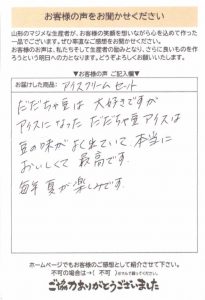 お客様の声をお聞かせください
山形のマジメな生産者が、お客様の笑顔を想いながら心を込めて作った
一品でございます。ぜひ率直なご感想をお聞かせください。
お客様のお声は、私たちそして生産者の励みとなり、さらに良いものを作
ろうという明日への力となります。どうぞよろしくお願いいたします。
▼お客様の声 ご記入欄▼
お届けした商品: アイスクリーム セット
だだちゃ豆は 大好きですが
アイスになった だだちゃ豆アイスは
豆の味がよく出ていて 本当に
おいしくて 最高です.
毎年 夏が楽しみです.
ホームページでもお客様のご感想として紹介させて下さい。
不可の場合は→( 不可 )
ご協力ありがとうございました